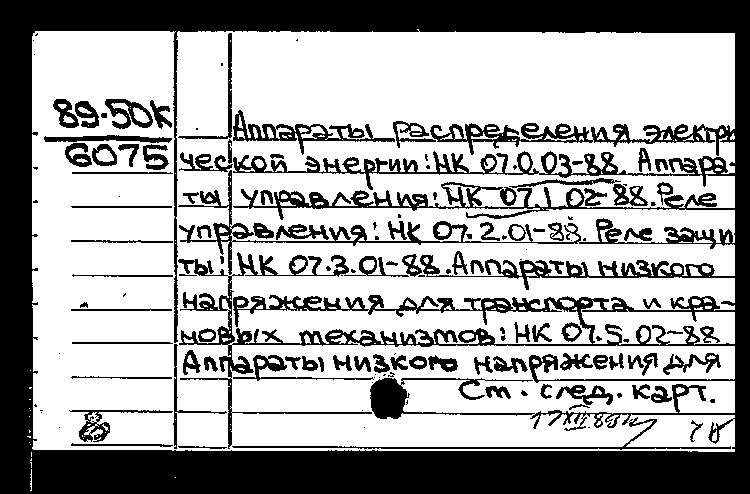 89-50к
6075
Аппараты распределения электри
ческой энергии: НК 07.0.03-88. Аппара-
ты управления: НК 07.1.02-88. Реле
управления: НК 07.2.01-88. Реле защи
ты: НК 07.3.01-88. Аппараты низкого
напряжения для транспорта и кра-
новых механизмов: НК 07.5.02-88
Аппараты низкого напряжения для
См. след. карт.
8
17 XII 89